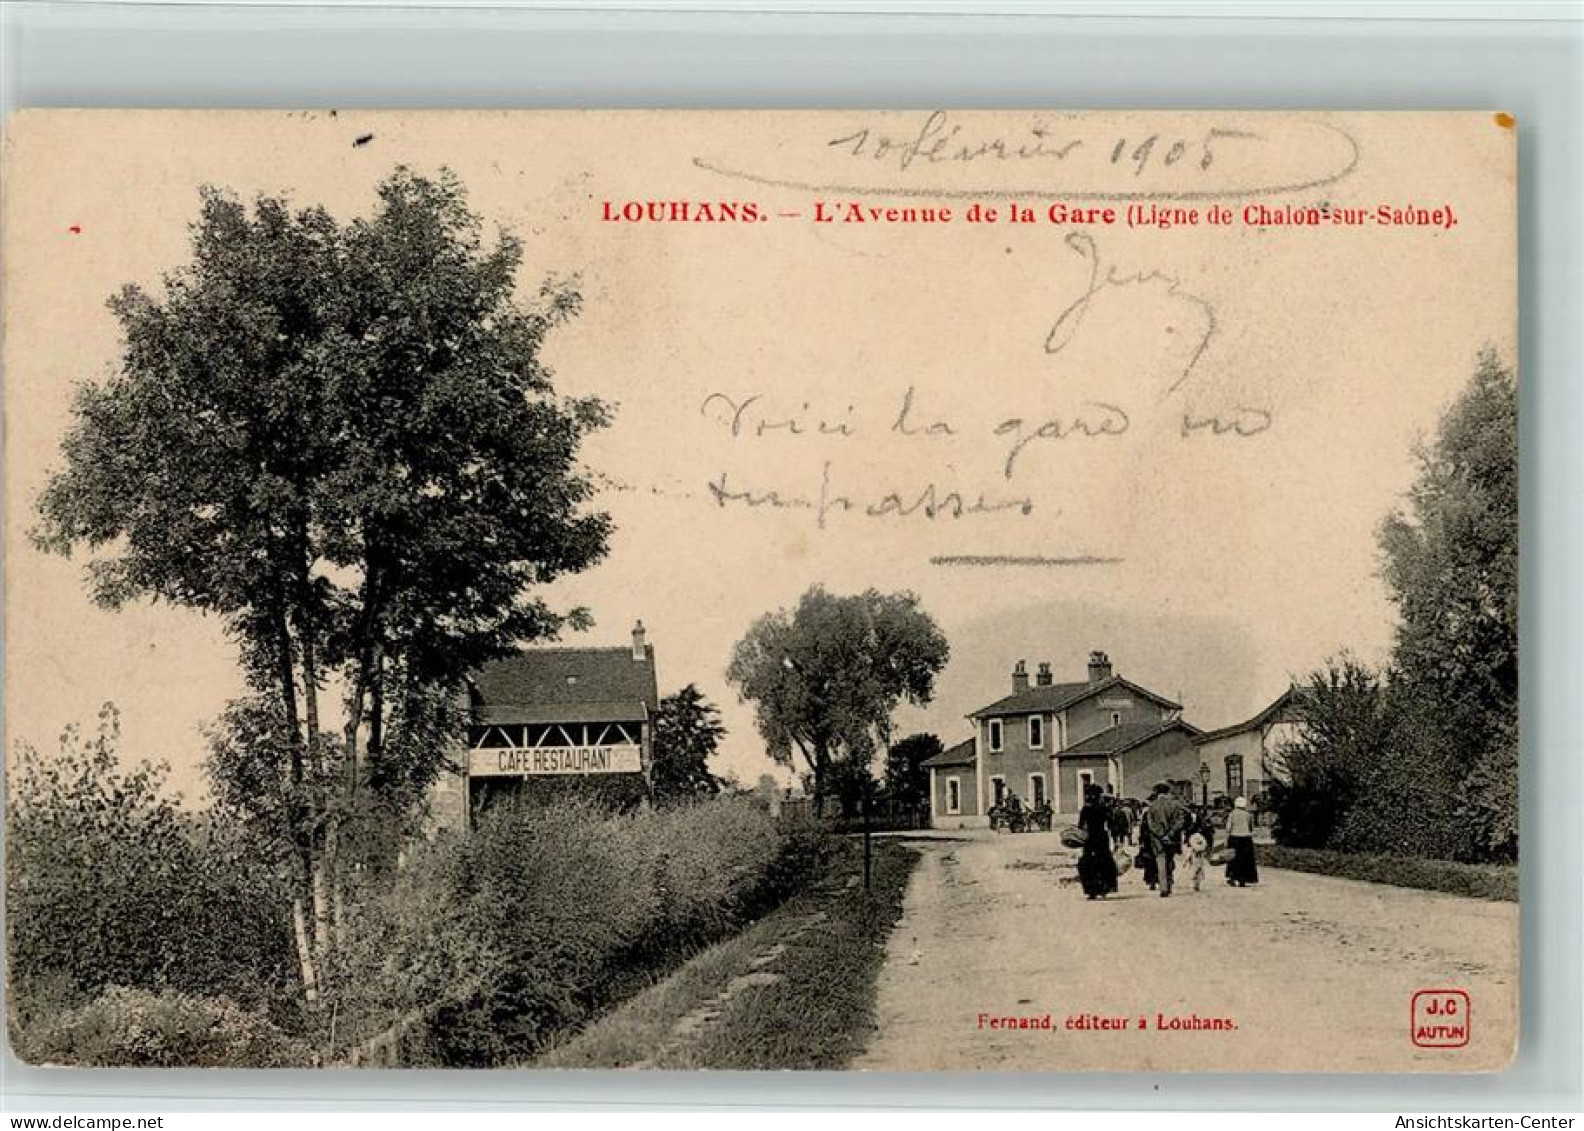 10 février 1905
LOUHANS. — L'Avenue de la Gare (Ligne de Chalon-sur-Saône).
Voici la gare ou
tu passes
CAFE RESTAURANT
Fernand, éditeur à Louhans.
J.C
AUTUN
delcampe.net
Ansichtskarten-Center